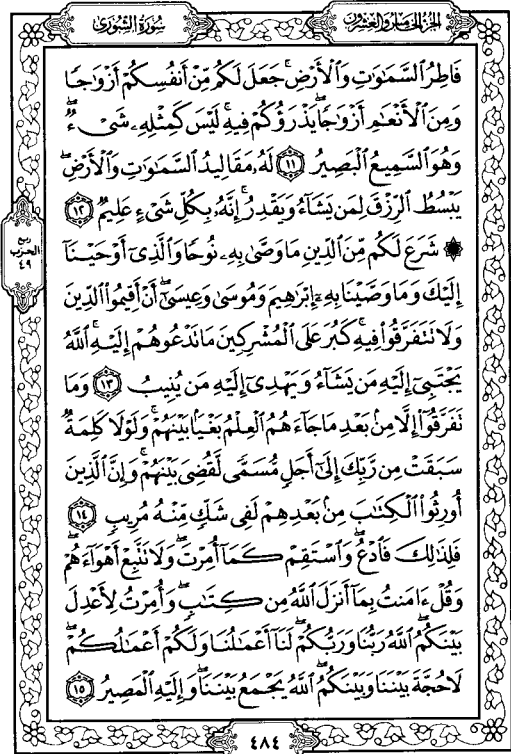 سُورَةُ الشُّورَىٰ
الجُزْءُ الخَامِسُ وَالعِشْرُونَ
فَاطِرُ السَّمَٰوَٰتِ وَالْأَرْضِ ۚ جَعَلَ لَكُم مِّنْ أَنفُسِكُمْ أَزْوَٰجًا
وَمِنَ الْأَنْعَٰمِ أَزْوَٰجًا ۖ يَذْرَؤُكُمْ فِيهِ ۚ لَيْسَ كَمِثْلِهِۦ شَىْءٌ ۖ
وَهُوَ السَّمِيعُ الْبَصِيرُ ١١ لَهُۥ مَقَالِيدُ السَّمَٰوَٰتِ وَالْأَرْضِ ۖ
يَبْسُطُ الرِّزْقَ لِمَن يَشَآءُ وَيَقْدِرُ ۚ إِنَّهُۥ بِكُلِّ شَىْءٍ عَلِيمٌ ١٢
۞ شَرَعَ لَكُم مِّنَ الدِّينِ مَا وَصَّىٰ بِهِۦ نُوحًا وَالَّذِىٓ أَوْحَيْنَآ
إِلَيْكَ وَمَا وَصَّيْنَا بِهِۦٓ إِبْرَٰهِيمَ وَمُوسَىٰ وَعِيسَىٰٓ ۖ أَنْ أَقِيمُوا الدِّينَ
وَلَا تَتَفَرَّقُوا فِيهِ ۚ كَبُرَ عَلَى الْمُشْرِكِينَ مَا تَدْعُوهُمْ إِلَيْهِ ۚ اللَّهُ
يَجْتَبِىٓ إِلَيْهِ مَن يَشَآءُ وَيَهْدِىٓ إِلَيْهِ مَن يُنِيبُ ١٣ وَمَا
تَفَرَّقُوٓا إِلَّا مِنۢ بَعْدِ مَا جَآءَهُمُ الْعِلْمُ بَغْيًۢا بَيْنَهُمْ ۚ وَلَوْلَا كَلِمَةٌ
سَبَقَتْ مِن رَّبِّكَ إِلَىٰٓ أَجَلٍ مُّسَمًّى لَّقُضِىَ بَيْنَهُمْ ۚ وَإِنَّ الَّذِينَ
أُورِثُوا الْكِتَٰبَ مِنۢ بَعْدِهِمْ لَفِى شَكٍّ مِّنْهُ مُرِيبٍ ١٤
فَلِذَٰلِكَ فَادْعُ ۖ وَاسْتَقِمْ كَمَآ أُمِرْتَ ۖ وَلَا تَتَّبِعْ أَهْوَآءَهُمْ ۖ
وَقُلْ ءَامَنتُ بِمَآ أَنزَلَ اللَّهُ مِن كِتَٰبٍ ۖ وَأُمِرْتُ لِأَعْدِلَ
بَيْنَكُمُ ۖ اللَّهُ رَبُّنَا وَرَبُّكُمْ ۖ لَنَآ أَعْمَٰلُنَا وَلَكُمْ أَعْمَٰلُكُمْ ۖ
لَا حُجَّةَ بَيْنَنَا وَبَيْنَكُمُ ۖ اللَّهُ يَجْمَعُ بَيْنَنَا ۖ وَإِلَيْهِ الْمَصِيرُ ١٥
ربع
الحزب
٤٩
٤٨٤